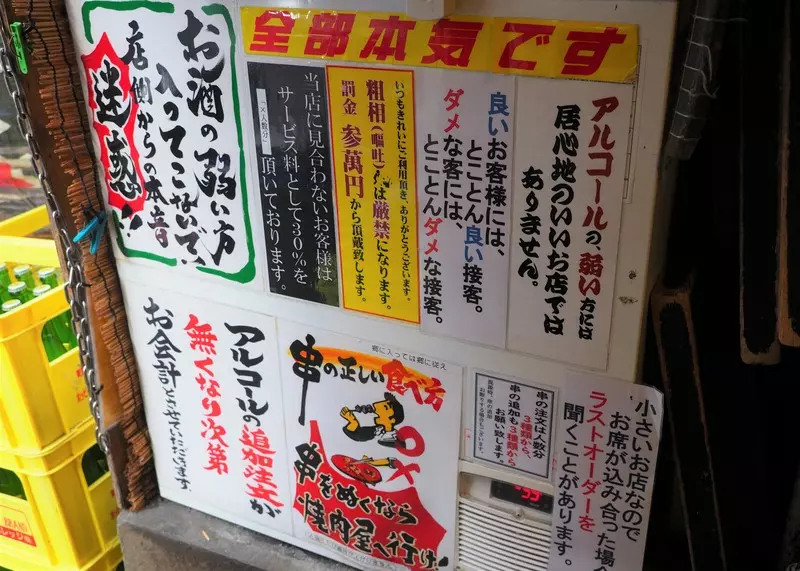 全部本気です
アルコールの、弱い方には
居心地のいいお店では
ありません。
良いお客様には、
とことん良い接客。
ダメな客には、
とことんダメな接客。
いつもきれいにご利用頂き、ありがとうございます。
粗相(嘔吐)は厳禁になります。
罰金 参萬円から頂戴致します。
当店に見合わないお客様は
サービス料として30%を
頂いております。
お酒の弱い方
入ってこないで
店側からの本音
迷惑!!
小さいお店なので
お席が込み合った場合
ラストオーダーを
聞くことがあります。
串の注文は人数分
3種類から、
串の追加も3種類から
お願い致します。
郷に入っては郷に従え
串の正しい食べ方
串をぬくなら
焼肉屋へ行け!
アルコールの追加注文が
無くなり次第
お会計とさせていただきます。
BRAND